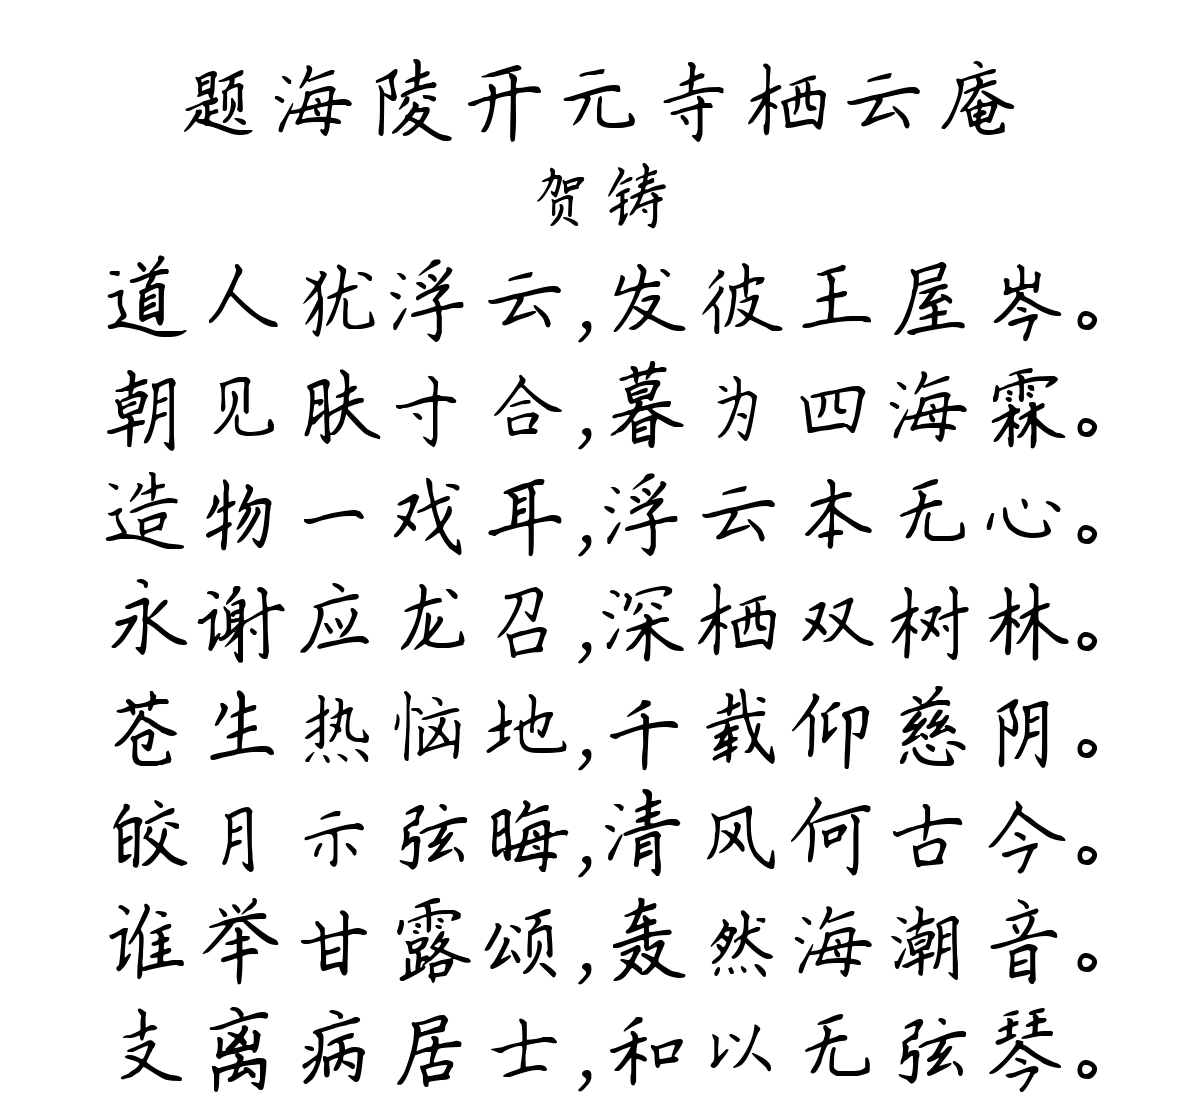 题海陵开元寺栖云庵
贺铸
道人犹浮云,发彼王屋岑。
朝见肤寸合,暮为四海霖。
造物一戏耳,浮云本无心。
永谢应龙召,深栖双树林。
苍生热恼地,千载仰慈阴。
皎月示弦晦,清风何古今。
谁举甘露颂,轰然海潮音。
支离病居士,和以无弦琴。